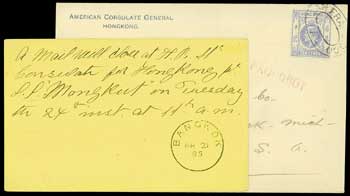 AMERICAN CONSULATE GENERAL
HONGKONG.
A Mail will close at H. B. M's
Consulate for Hongkong pr
S.S. "Mongkut" on Tuesday
the 24th inst. at 11 a.m.
BANGKOK
21
85
Co.
Mich
S. A.